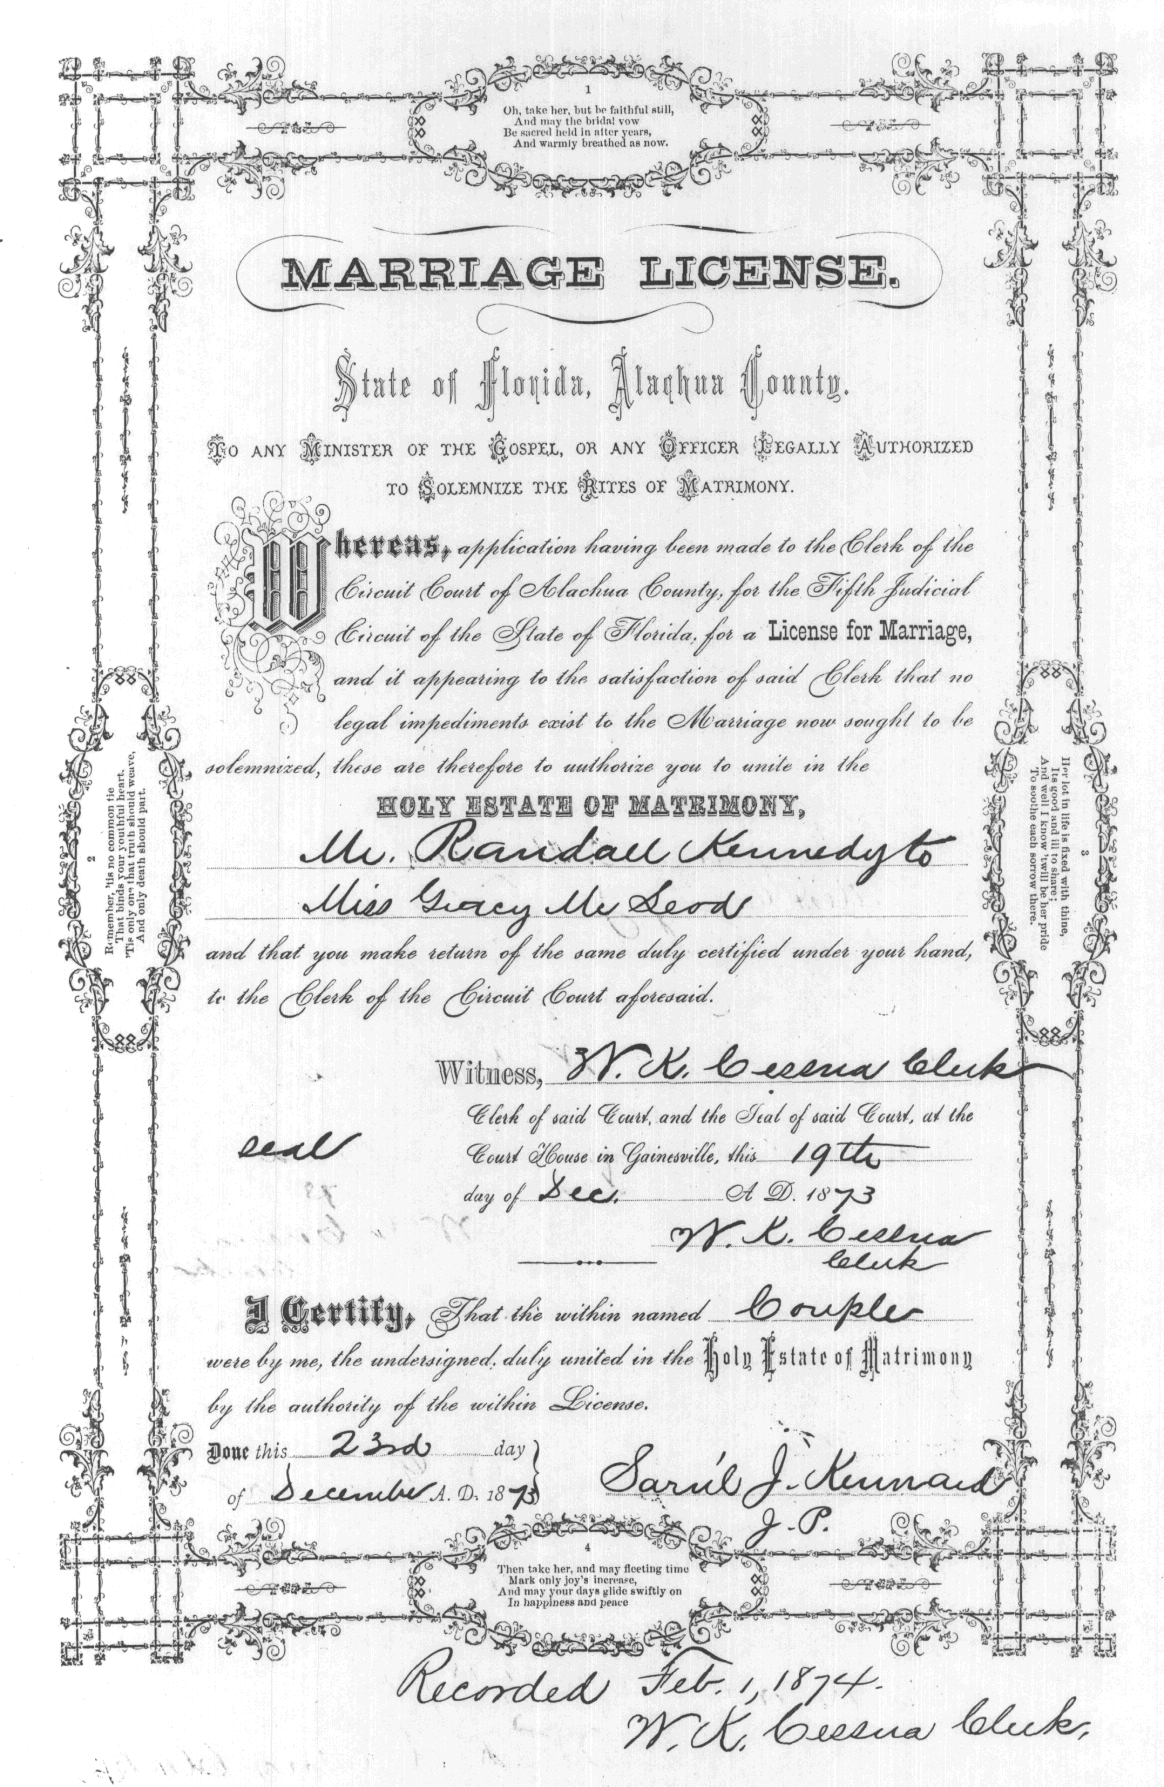 1
Oh, take her, but be faithful still,
And may the bridal vow
Be sacred held in after years,
And warmly breathed as now.
MARRIAGE LICENSE.
State of Florida, Alachua County.
TO ANY MINISTER OF THE GOSPEL, OR ANY OFFICER LEGALLY AUTHORIZED
TO SOLEMNIZE THE RITES OF MATRIMONY.
Whereas, application having been made to the Clerk of the
Circuit Court of Alachua County, for the Fifth Judicial
Circuit of the State of Florida, for a License for Marriage,
and it appearing to the satisfaction of said Clerk that no
legal impediments exist to the Marriage now sought to be
solemnized, these are therefore to authorize you to unite in the
HOLY ESTATE OF MATRIMONY,
Mr. Randall Kennedy to
Miss Gracy Mc Leod
and that you make return of the same duly certified under your hand,
to the Clerk of the Circuit Court aforesaid.
2
Remember, 'tis no common tie
That binds your youthful heart,
'Tis only one that truth should weave,
And only death should part.
3
Her lot in life is fixed with thine,
Its good and ill to share;
And well I know 'twill be her pride
To soothe each sorrow there.
Witness, W. K. Cessna Clerk
Clerk of said Court, and the Seal of said Court, at the
seal
Court House in Gainesville, this 19th
day of Dec. A D. 1873
W. K. Cessna
Clerk
I Certify, That the within named Couple
were by me, the undersigned, duly united in the Holy Estate of Matrimony
by the authority of the within License.
Done this 23rd day
of December A. D. 1873
Sam'l J. Kennard
J. P.
4
Then take her, and may fleeting time
Mark only joy's increase,
And may your days glide swiftly on
In happiness and peace
Recorded Feb. 1, 1874.
W. K. Cessna Clerk.